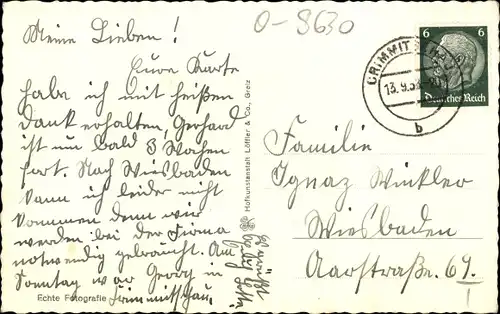 O-9630
Meine Lieben!
Eure Karte
habe ich mit heißen
Dank erhalten, Gerhard
ist nun bald 3 Wochen
fort. Nach Wiesbaden
kann ich leider nicht
kommen denn wir
werden bei der Firma
notwendig gebraucht. Am
Sonntag war Georg in
Crimmitschau.
Es grüßt
Echte Fotografie
Hofkunstanstalt Löffler & Co., Greiz
CRIMMITSCHAU
13.9.
b
6 6
Deutsches Reich
Familie
Ignaz Winkler
Wiesbaden
Aarstraße 67.
I